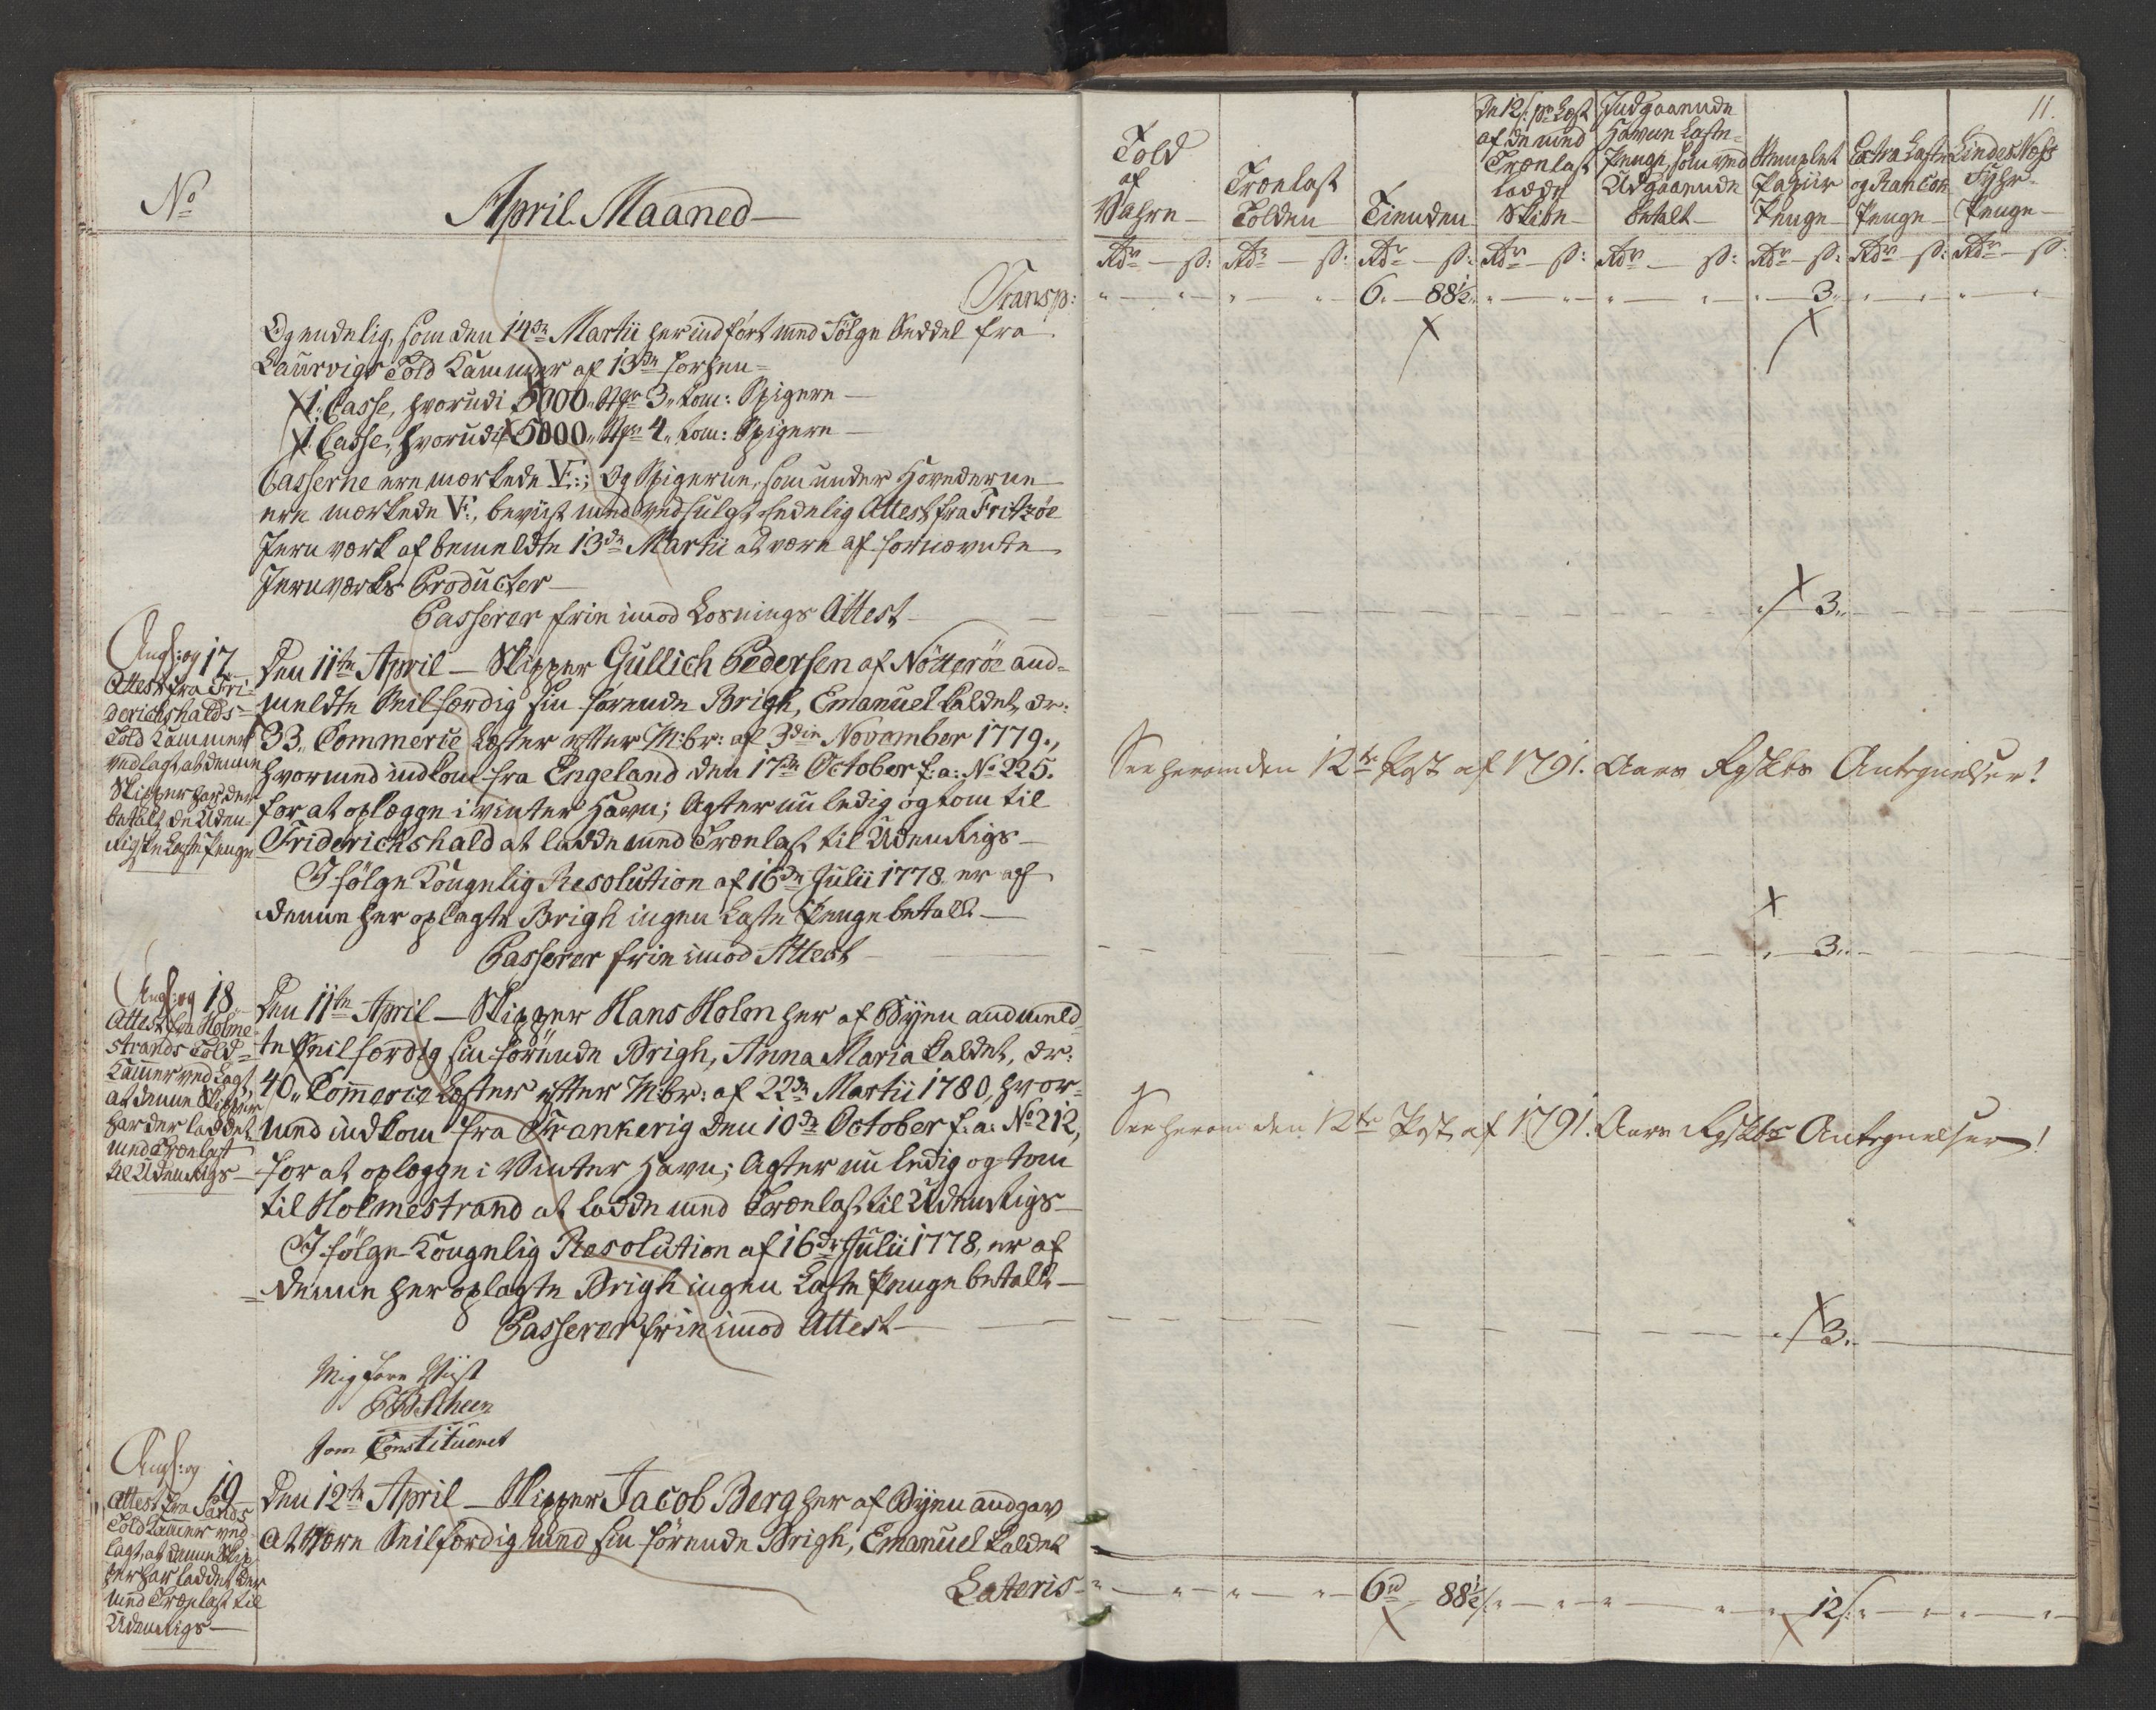 No
April Maaned
Transp:
Og endelig, som den 14de Martii her indført med Følge Seddel fra
Laurvigs Told Kammer af 13de forhen=
1. Casse, hvorudi 5000 Stkr 3„ tom: Spigere
1 Casse, hvorudi 5000„ Stkr 4„ tom: Spigere
Casserne ere mærkede VF:; Og Spigerne, som under Hovederne
ere mærkede VF:, beviist med vedfulgt eedelig Attest fra Fritzöe
Jernværk af bemeldte 13de Martii at være af fornævnte
Jernværks Producter
Passerer frie imod Losnings Attest
Angs: og 17
Attest fra Fri-
derichshalds
Told Kammer
vedlagt, at denne
Skipper har der
betalt de Uden-
rigske Laste Penge
Den 11te April — Skipper Gullich Pedersen af Nötteröe and-
meldte Seilfærdig sin førende Brigh, Emanuel kaldet, dr:
33„ Commerce Læster efter M:br: af 3die November 1779.,
hvormed indkom fra Engeland den 17de October f: a: No 225.
for at oplægge i vinter Havn; Agter nu ledig og tom til
Friderichshald at ladde med Trælast til Udenrigs
I følge Kongelig Resolution af 16de Julii 1778. er af
denne her oplagte Brigh ingen Laste Penge betalt
Passerer frie imod Attest
Angs: og 18
Attest fra Holme-
strands Told
Kammer ved Lagt
at denne Skipper
har der laddet
med Trælast
til Udenrigs
Den 11te April — Skipper Hans Holm her af Byen andmeld-
te Seilfærdig sin førende Brigh, Anna Maria kaldet, dr:
40„ Commerce Læster efter M:br: af 22de Martii 1780, hvor-
med indkom fra Frankerig den 10de October f: a: No 212,
for at oplægge i Vinter Havn; Agter nu ledig og tom
til Holmestrand at ladde med Trælast til Udenrigs
I følge Kongelig Resolution af 16de Julii 1778, er af
denne her oplagte Brigh ingen Laste Penge betalt
Passerer frie imod Attest
Mig fore Viist
Scheen
som Constitueret
Angs: og 19
Attest fra Sands
Told Kammer ved-
lagt, at denne Skip-
per har laddet der
med Trælast til
Udenrigs
Den 12te April — Skipper Jacob Berg her af Byen andgav
at være Seilfærdig med sin førende Brigh, Emanuel kaldet
Lateris
11.
Told af Vahre
Trælast Tolden
Tienden
De 12 s: pr Læst af de med Trælast ladde Skibe
Indgaaende Havne Laste-Penge, som ved Udgaaende betalt
Stemplet Papiir Penge
Extra Laste og Rancon Penge
Lindes Næss Fyhr Penge
Rdr — s: Rdr — s: Rdr — s: Rdr — s: Rdr — s: Rdr — s: Rdr — s: Rdr — s:
6. 88½. 3„
3„
See herom den 12te Post af 1791. Aars Rgskbs Antegnelser!
3„
See herom den 12te Post af 1791. Aars Rgskbs Antegnelser!
3„
6rd 88½ 12s